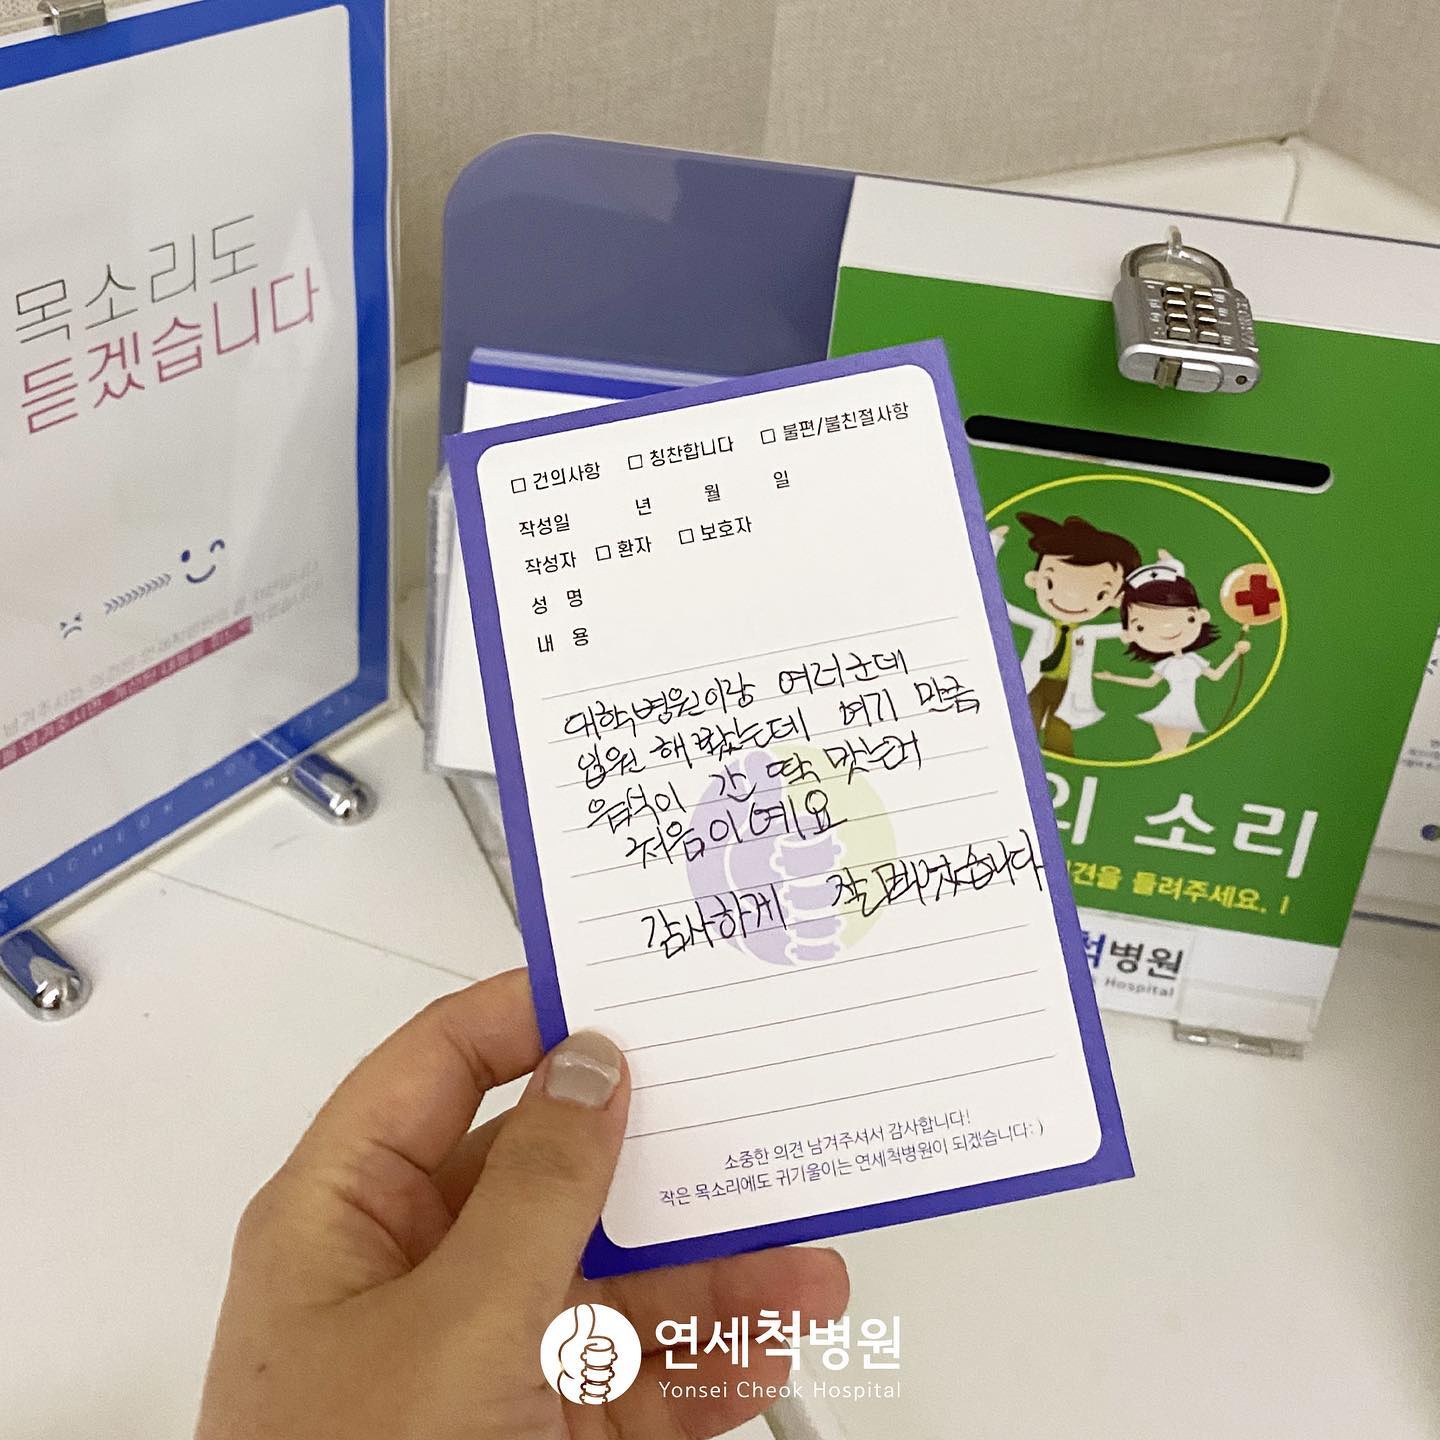 목소리도
듣겠습니다
□ 건의사항 □ 칭찬합니다 □ 불편/불친절사항
작성일 년 월 일
작성자 □ 환자 □ 보호자
성 명
내 용
대학병원이랑 여러군데
입원 해 봤는데 여기 만큼
음식이 간 딱 맞는거
처음이예요
감사하게 잘먹겠습니다
소중한 의견 남겨주셔서 감사합니다!
작은 목소리에도 귀기울이는 연세척병원이 되겠습니다:)
의 소리
의견을 들려주세요.
척병원
Hospital
연세척병원
Yonsei Cheok Hospital